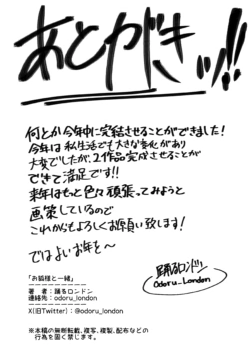 あとがきッ!!
何とか今年中に完結させることができました!
今年は私生活でも大きな変化があり
大変でしたが、2作品完成させることが
できて満足です!!
来年はもっと色々頑張ってみようと
画策しているので
これからもよろしくお願い致します!
ではよいお年を〜
踊るロンドン
Odoru_London
「お狐様と一緒」
著 者：踊るロンドン
連絡先：odoru_london
X(旧Twitter)：@odoru_london
※本編の無断転載、複写、複製、配布などの
行為を固く禁じます。